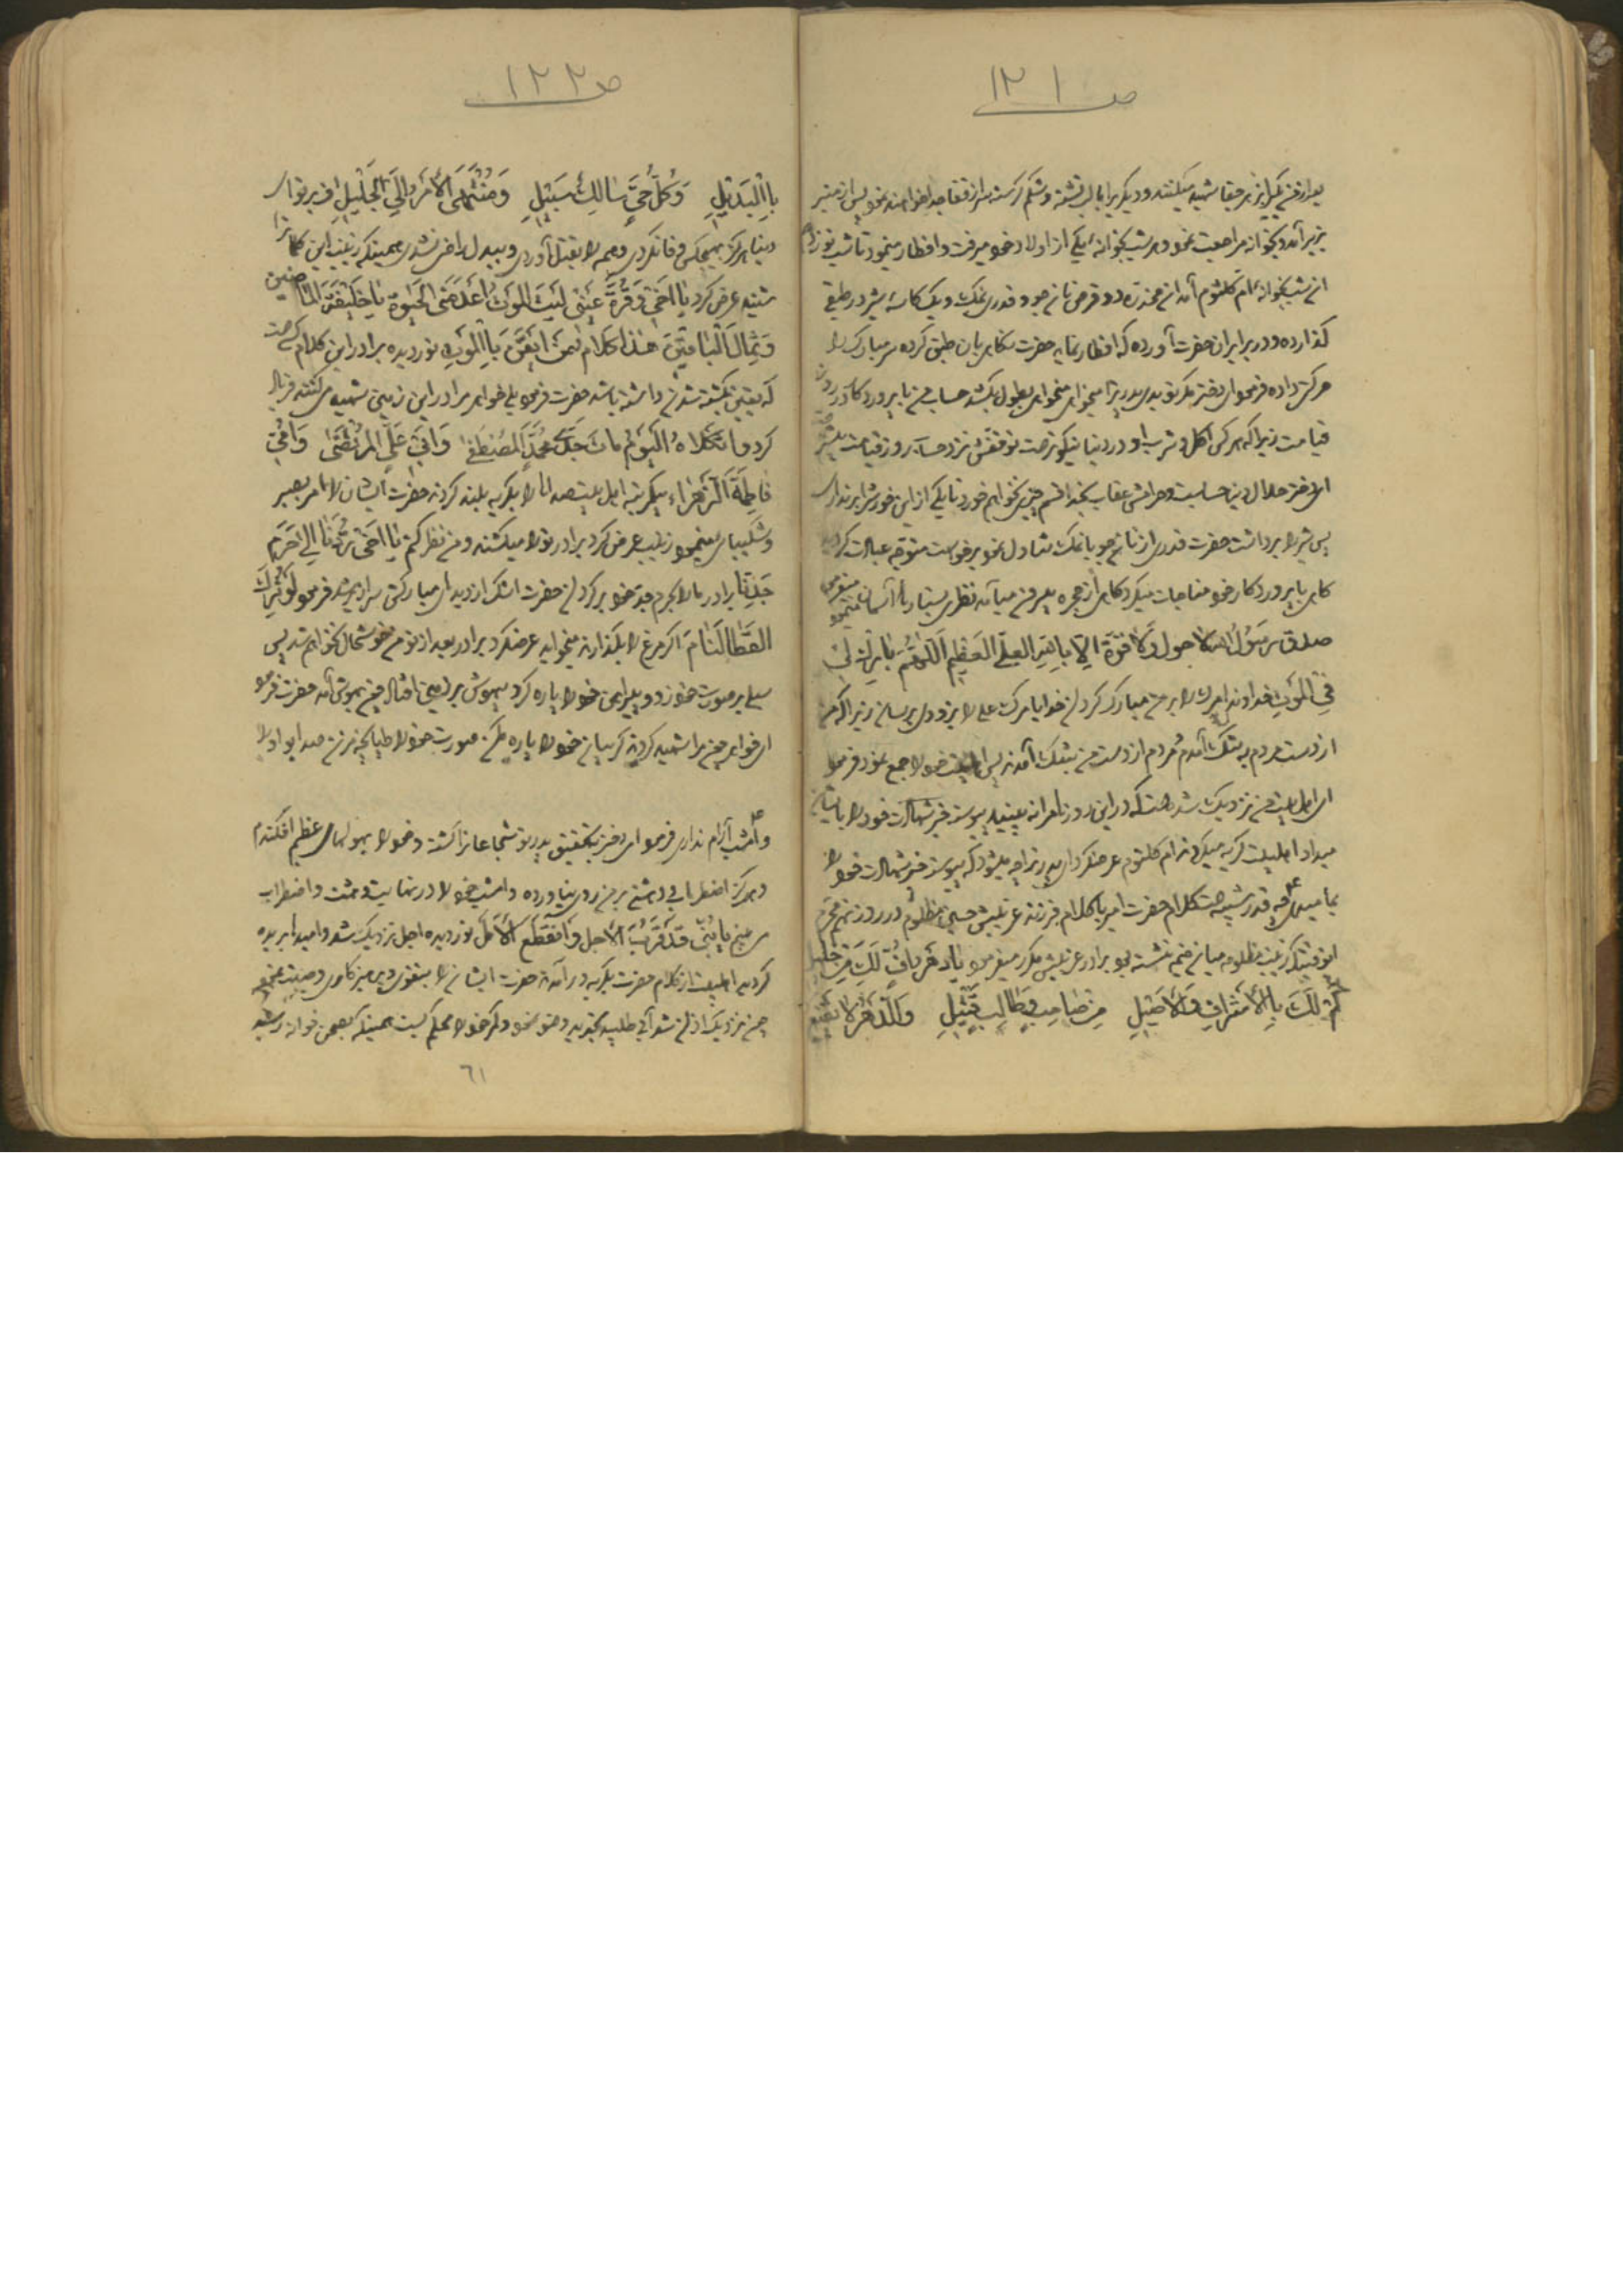 ص ۱۲۱
بزیر آمد و بخانه مراجعت نمود و هر شب بخوانه یکی از اولاد خود میرفت و افطار مینمود تا شب نوزدهم
ان شب بخوانه ام کلثوم آمد ان مخدره دو قرص نان جو و قدری نمک و یک کاسه شیر در طبقی
گذارده و در برابر ان حضرت آورده که افطار نماید حضرت نگاهی بان طبق کرده سر مبارک را
حرکت داده فرمود ای دختر مگر تو پدرت را میخواهی بطول بکشد حساب من با پروردگار در روز
قیامت زیرا که هر کس اکل و شرب او در دنیا نیکوتر است توقفش نزد حساب روز قیامت بیشتر
ای دختر حلال دنیا حساب و حرامش عقاب بخدا قسم چیزی نخواهم خورد تا یکی از این خورش را برنداری
پس شیر را برداشت حضرت قدری از نان جو با نمک تناول نمود برخواست متوجه عبادت گردید
کاهی با پروردگار خود مناجات میکرد کاهی از حجره بیرون میآمد نظری بستارها آسمان مینمود میفرمود
صدق رسول الله لا حول ولا قوة الا بالله العلی العظیم اللهم بارک لی
فی الموت خداوندا مرک را بر من مبارک کردان خدایا مرک علی را بزودی برسان زیرا که من
از دست مردم به تنک آمدم مردم از دست من بتنک آمدند پس اهلبیت خود را جمع نمود فرمود
ای اهلبیت من نزدیک شده است که در این روزها مرا نه بینید پیوسته خبر شهادت خود را بایشان
میداد اهلبیت گریه میکردند ام کلثوم عرضکرد ای پدر ترا چه میشود که پیوسته خبر شهادت خود را
بما میدهی چه قدر شبیه است کلام حضرت امیر با کلام فرزند عزیزش حسین مظلوم در روز نهم محرم
انوقتیکه زینب مظلومه میان خیمه نشسته بود برادر عزیزش مکرر میفرمود یا دهر اف لک من خلیل
کم لک بالاشراق والاصیل من صاحب وطالب قتیل والدهر لا یقنع
ص ۱۲۲
بالبدیل وکل حی سالک سبیل ومنتهی الامر الی الجلیل اف بر تو ای
دنیا هرکز بهیچکس وفا نکردی و همه را بقتل آوردی و ببدل راضی نشدی همینکه زینب این کلمات را
شنید عرض کرد یا اخی وقرة عینی لیت الموت اعدمنی الحیوة یا خلیفة الماضین
وثمال الباقین هذا کلام من ایقن بالموت نور دیده برادر این کلام کسی است
که یقین بکشته شدن داشته باشد حضرت فرمود بلی خواهر مرا در این زمین شهید می کنند فریاد
کرد واثکلاه الیوم مات جدی محمد المصطفی وابی علی المرتضی وامی
فاطمة الزهراء
و شکیبای مینمود زینب عرض کرد برادر تو را میکشند و من نظر کنم یا اخی ردنا الی حرم
جدنا برادر ما را بحرم جد خود بر کردان حضرت اشک از دیدهای مبارکش سرازیر شد فرمود لو ترک
القطا لنام اگر مرغ را بگذارند میخوابد عرضکرد برادر بعد از تو من خوشحال نخواهم شد پس
سیلی بر صورت خود زد و پیراهن خود را پاره کرد بیهوش بر زمین افتاد چون بهوش آمد حضرت فرمود
ای خواهر چون مرا شهید کردند گریبان خود را پاره مکن صورت خود را طپانچه مزن صدا بواویلا
و امشب آرام نداری فرمود ای دختر بتحقیق پدر تو شجاعان را کشته و خود را بهولهای عظیم افکندم
و هرکز اضطرابی و دهشتی بر من روی نیاورده و امشب خود را در نهایت وحشت و اضطراب
می بینم یا بنی قد قرب الاجل وانقطع الامل نور دیده اجل نزدیک شد و امید بریده
گردید اهلبیت از کلام حضرت بگریه در آمدند حضرت ایشان را بتقوی و پرهیزکاری وصیت نمود
چون نزدیک اذان شد آبی طلبید تجدید وضو نمود و کمر خود را محکم بست همینکه بصحن خوانه رسید
٦١